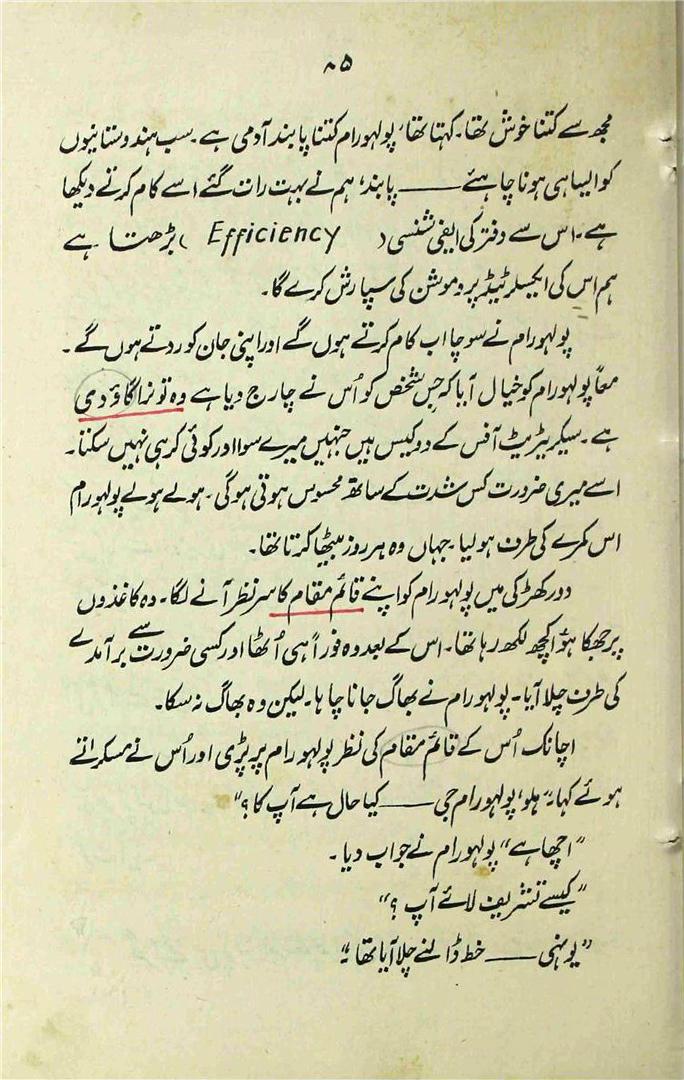 ۸۵
مجھ سے کتنا خوش تھا۔ کہتا تھا، پولہو رام کتنا پابند آدمی ہے۔ سب ہندوستانیوں
کو ایسا ہی ہونا چاہئے ——— پابند، ہم نے بہت رات گئے اسے کام کرتے دیکھا
ہے۔ اس سے دفتر کی ایفی شنسی ( Efficiency ) بڑھتا ہے
ہم اس کی ایکسلرٹیڈ پروموشن کی سپارش کرے گا۔
پولہو رام نے سوچا اب کام کرتے ہوں گے اور اپنی جان کو روتے ہوں گے۔
معاً پولہو رام کو خیال آیا کہ جس شخص کو اُس نے چارج دیا ہے وہ تو نرا گاؤدی
ہے۔ سیکریٹریٹ آفس کے دو کیس ہیں جنہیں میرے سوا اور کوئی کر ہی نہیں سکتا۔
اسے میری ضرورت کس شدت کے ساتھ محسوس ہوتی ہوگی۔ ہولے ہولے پولہو رام
اس کمرے کی طرف ہو لیا۔ جہاں وہ ہر روز بیٹھا کرتا تھا۔
دور کھڑکی میں پولہو رام کو اپنے قائم مقام کا سر نظر آنے لگا۔ وہ کاغذوں
پر جھکا ہؤا کچھ لکھ رہا تھا۔ اس کے بعد وہ فوراً ہی اُٹھا اور کسی ضرورت سے برآمدے
کی طرف چلا آیا۔ پولہو رام نے بھاگ جانا چاہا۔ لیکن وہ بھاگ نہ سکا۔
اچانک اُس کے قائم مقام کی نظر پولہو رام پر پڑی اور اُس نے مسکراتے
ہوئے کہا۔ ”ہلو، پولہو رام جی ——— کیا حال ہے آپ کا؟“
”اچھا ہے“ پولہو رام نے جواب دیا۔
”کیسے تشریف لائے آپ ؟“
”یونہی ——— خط ڈالنے چلا آیا تھا۔“